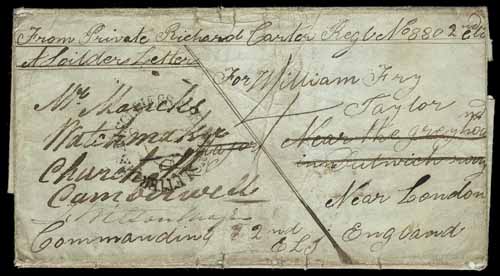 From Private Richard Carter Regt No 880 2nd
A Soilders Letter
For William Fry
Taylor
Near the Greyhound
inn Dulwich
Near London
England
Mr
Watchmaker
Church St
Camberwell
Commanding 2nd E L I